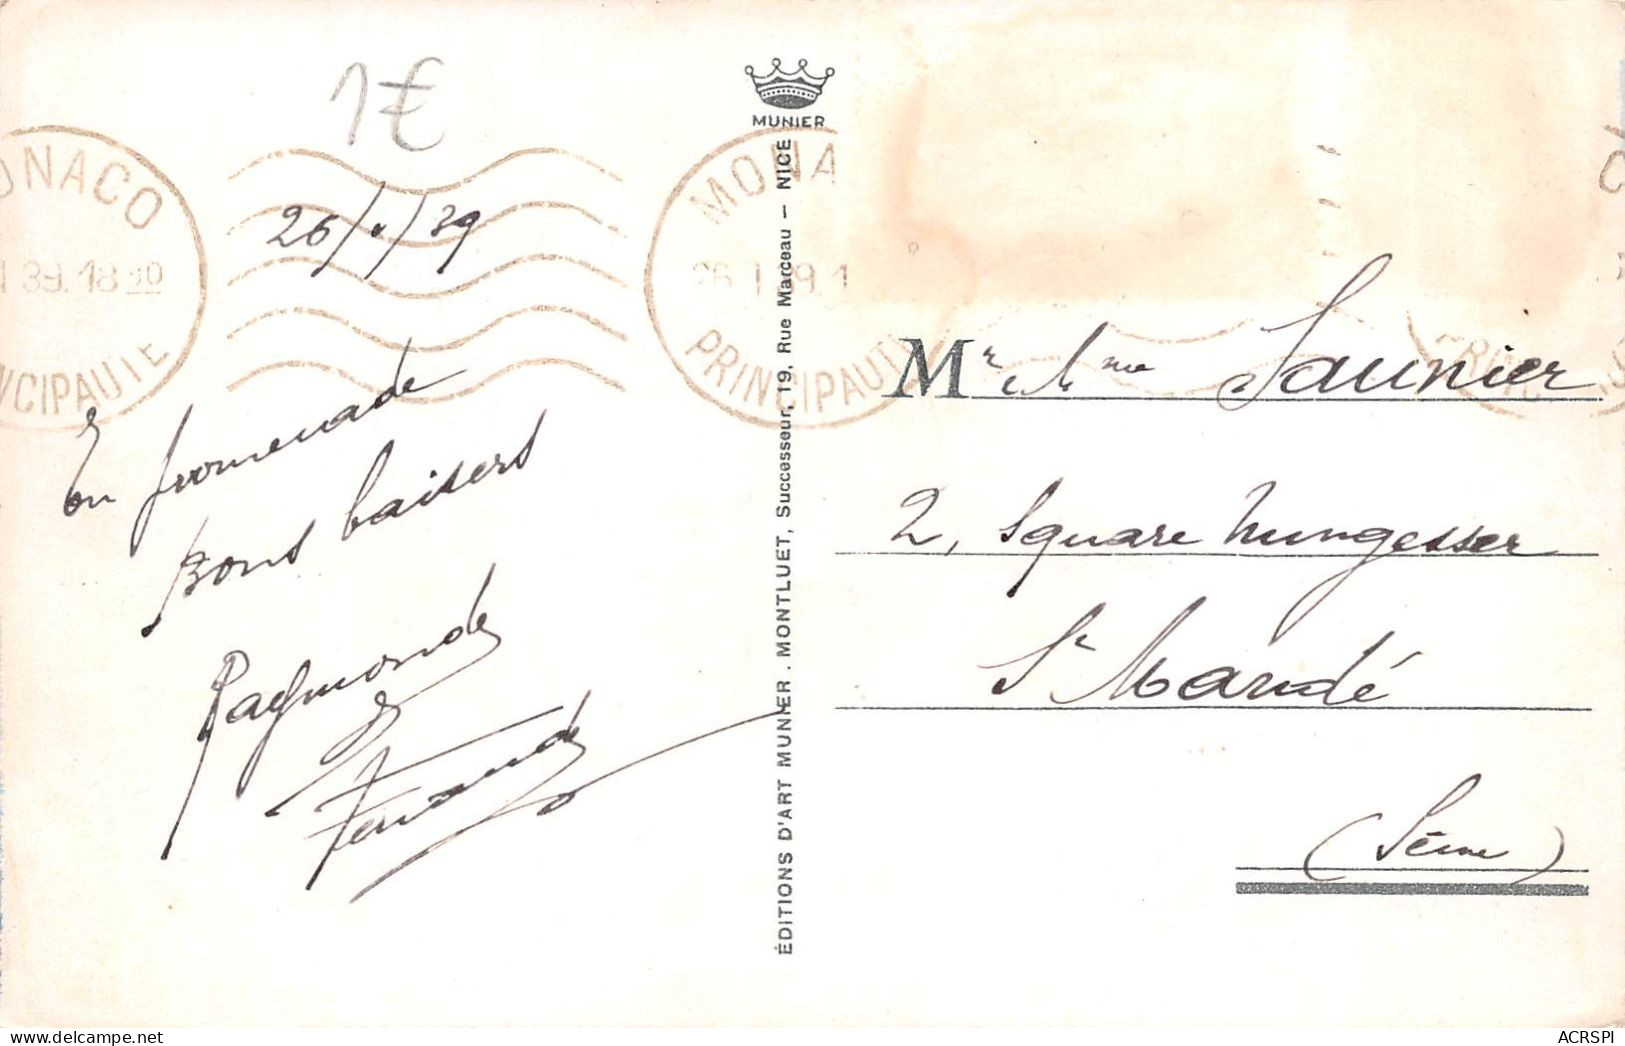 1€
MUNIER
ONACO
1 39. 18 30
NCIPAUTE
MONA
26 1 39. 1
PRINCIPAUTE
26/1/39
En promenade
Bons baisers
Raymonde
Fernande
ÉDITIONS D'ART MUNIER. MONTLUET, Successeur, 19, Rue Marceau – NICE
Mr & Mme Saunier
2, Square Nungesser
St Mandé
(Seine)
ACRSPI